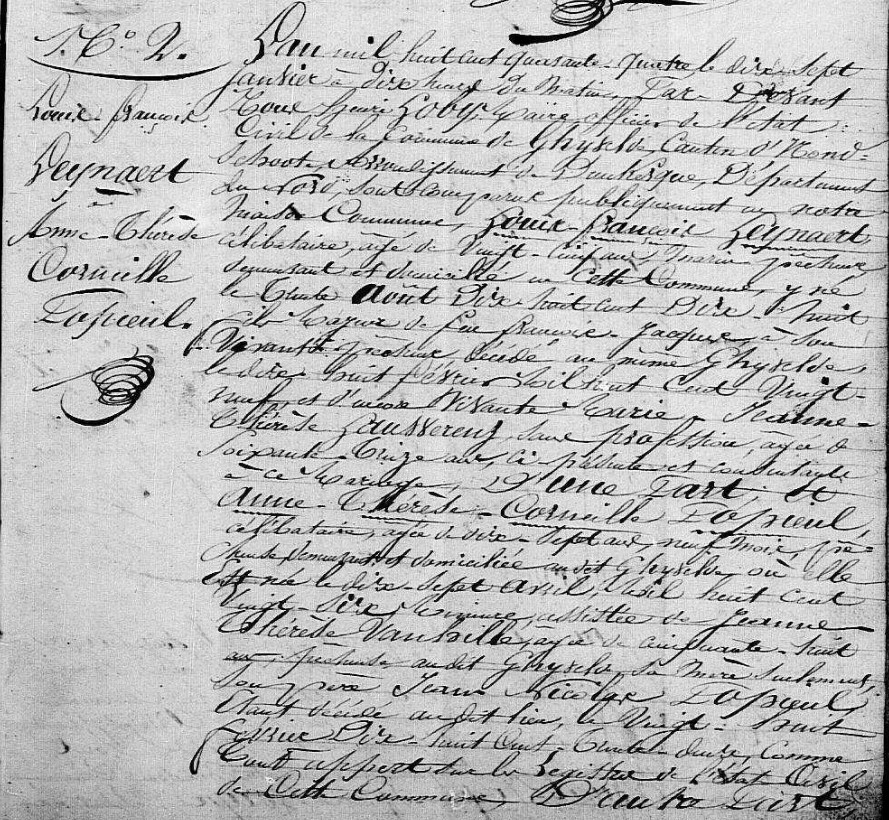 N.º 2.
Louis-françois
Leynaert
&
Anne-Thérèse
Corneille
Topieul.
L'an mil huit cent quarante-quatre le dix-Sept
janvier à dix heures du Matin, Par-Devant
Nous henri Looÿ, Maire, officier de l'etat
Civil de la Commune de Ghyvelde, Canton d'Hond-
Schoote, arrondissement de Dunkerque, Département
du Nord, sont comparus publiquement en notre
Maison Commune, Louis-françois Leynaert,
célibataire, agé de Vingt-cinq ans, marin pêcheur
demeurant et domicilié en Cette Commune, y né
le Trente Août Dix huit cent Dix-huit
fils Majeur de feu françois-Jacques, à son
Vivant pêcheur, décédé au même Ghyvelde,
le dix-huit février Mil huit Cent Vingt-
neuf, et d'encore Vivante Marie-Jeanne-
Thérèse, Sans profession, agée de
Soixante-Treize ans, ci présente et consentante
à ce Mariage, D'une Part; Et
Anne-Thérèse-Corneille Topieul,
célibataire, agée de dix-Sept ans, neuf Mois, pê-
cheuse, demeurant et domiciliée audit Ghyvelde, où elle
Est née le dix-Sept avril, Mil huit cent
Vingt-Six, Mineure, assistée de Jeanne
Thérèse Vanhille, agée de cinquante-huit
ans, pêcheuse audit Ghyvelde, Sa Mère Seulement,
Son père Jean Nicolas Topieul,
étant décédé audit lieu, le Vingt-huit
fevrier Dix-huit Cent-Trente-deux, Comme
Tout appert sur les Registres de l'état Civil
de Cette Commune, D'autre Part,